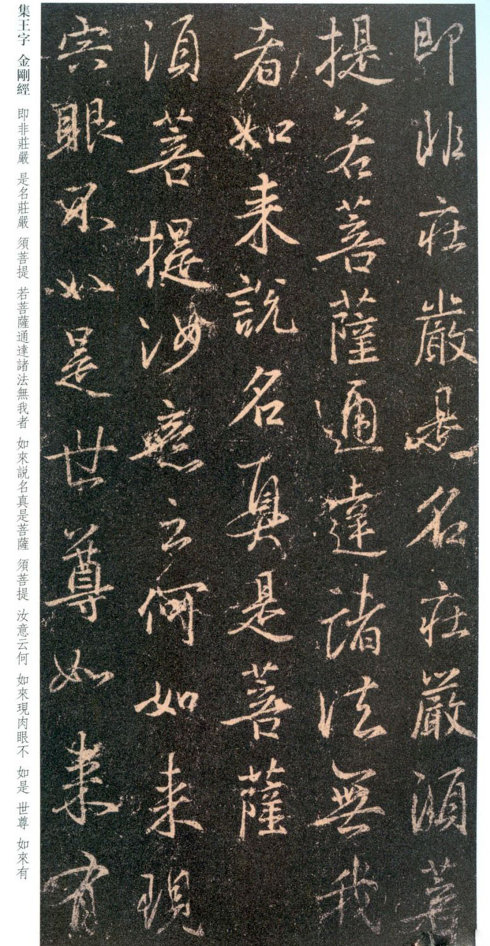 即非莊嚴是名莊嚴須菩
提若菩薩通達諸法無我
者如来說名真是菩薩
須菩提汝意云何如来現
宍眼不如是世尊如来有
集王字 金剛經 即非莊嚴 是名莊嚴 須菩提 若菩薩通達諸法無我者 如來説名真是菩薩 須菩提 汝意云何 如來現肉眼不 如是 世尊 如來有